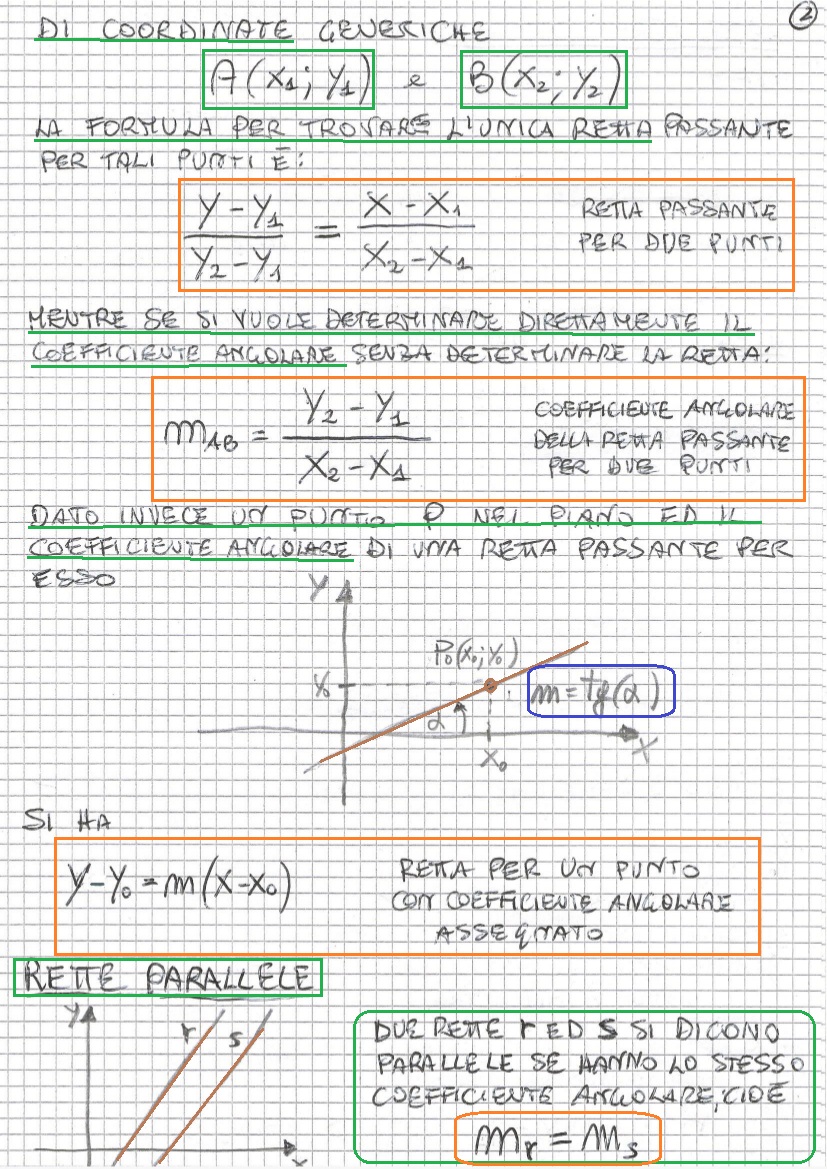 2
DI COORDINATE GENERICHE
A(X1; Y1) e B(X2; Y2)
LA FORMULA PER TROVARE L'UNICA RETTA PASSANTE
PER TALI PUNTI È:
Y - Y1 / Y2 - Y1 = X - X1 / X2 - X1
RETTA PASSANTE
PER DUE PUNTI
MENTRE SE SI VUOLE DETERMINARE DIRETTAMENTE IL
COEFFICIENTE ANGOLARE SENZA DETERMINARE LA RETTA:
mAB = Y2 - Y1 / X2 - X1
COEFFICIENTE ANGOLARE
DELLA RETTA PASSANTE
PER DUE PUNTI
DATO INVECE UN PUNTO P NEL PIANO ED IL
COEFFICIENTE ANGOLARE DI UNA RETTA PASSANTE PER
ESSO
Y
P0(X0; Y0)
Y0
m = tg(α)
α
X0
X
SI HA
Y - Y0 = m(X - X0)
RETTA PER UN PUNTO
CON COEFFICIENTE ANGOLARE
ASSEGNATO
RETTE PARALLELE
Y
r
s
X
DUE RETTE r ED s SI DICONO
PARALLELE SE HANNO LO STESSO
COEFFICIENTE ANGOLARE, CIOÈ
mr = ms